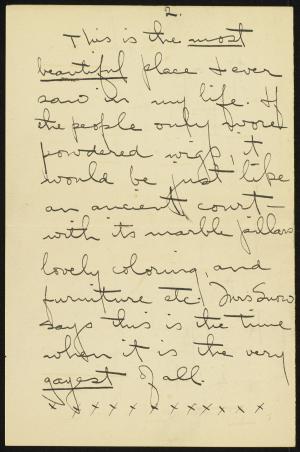 2.
This is the most
beautiful place I ever
saw in my life. If
the people only wore
powdered wigs, it
would be just like
an ancient court—
with its marble pillars
lovely coloring, and
furniture etc. Mrs Snow
says this is the time
when it is the very
gayest of all.
x x x x x x x x x x x x